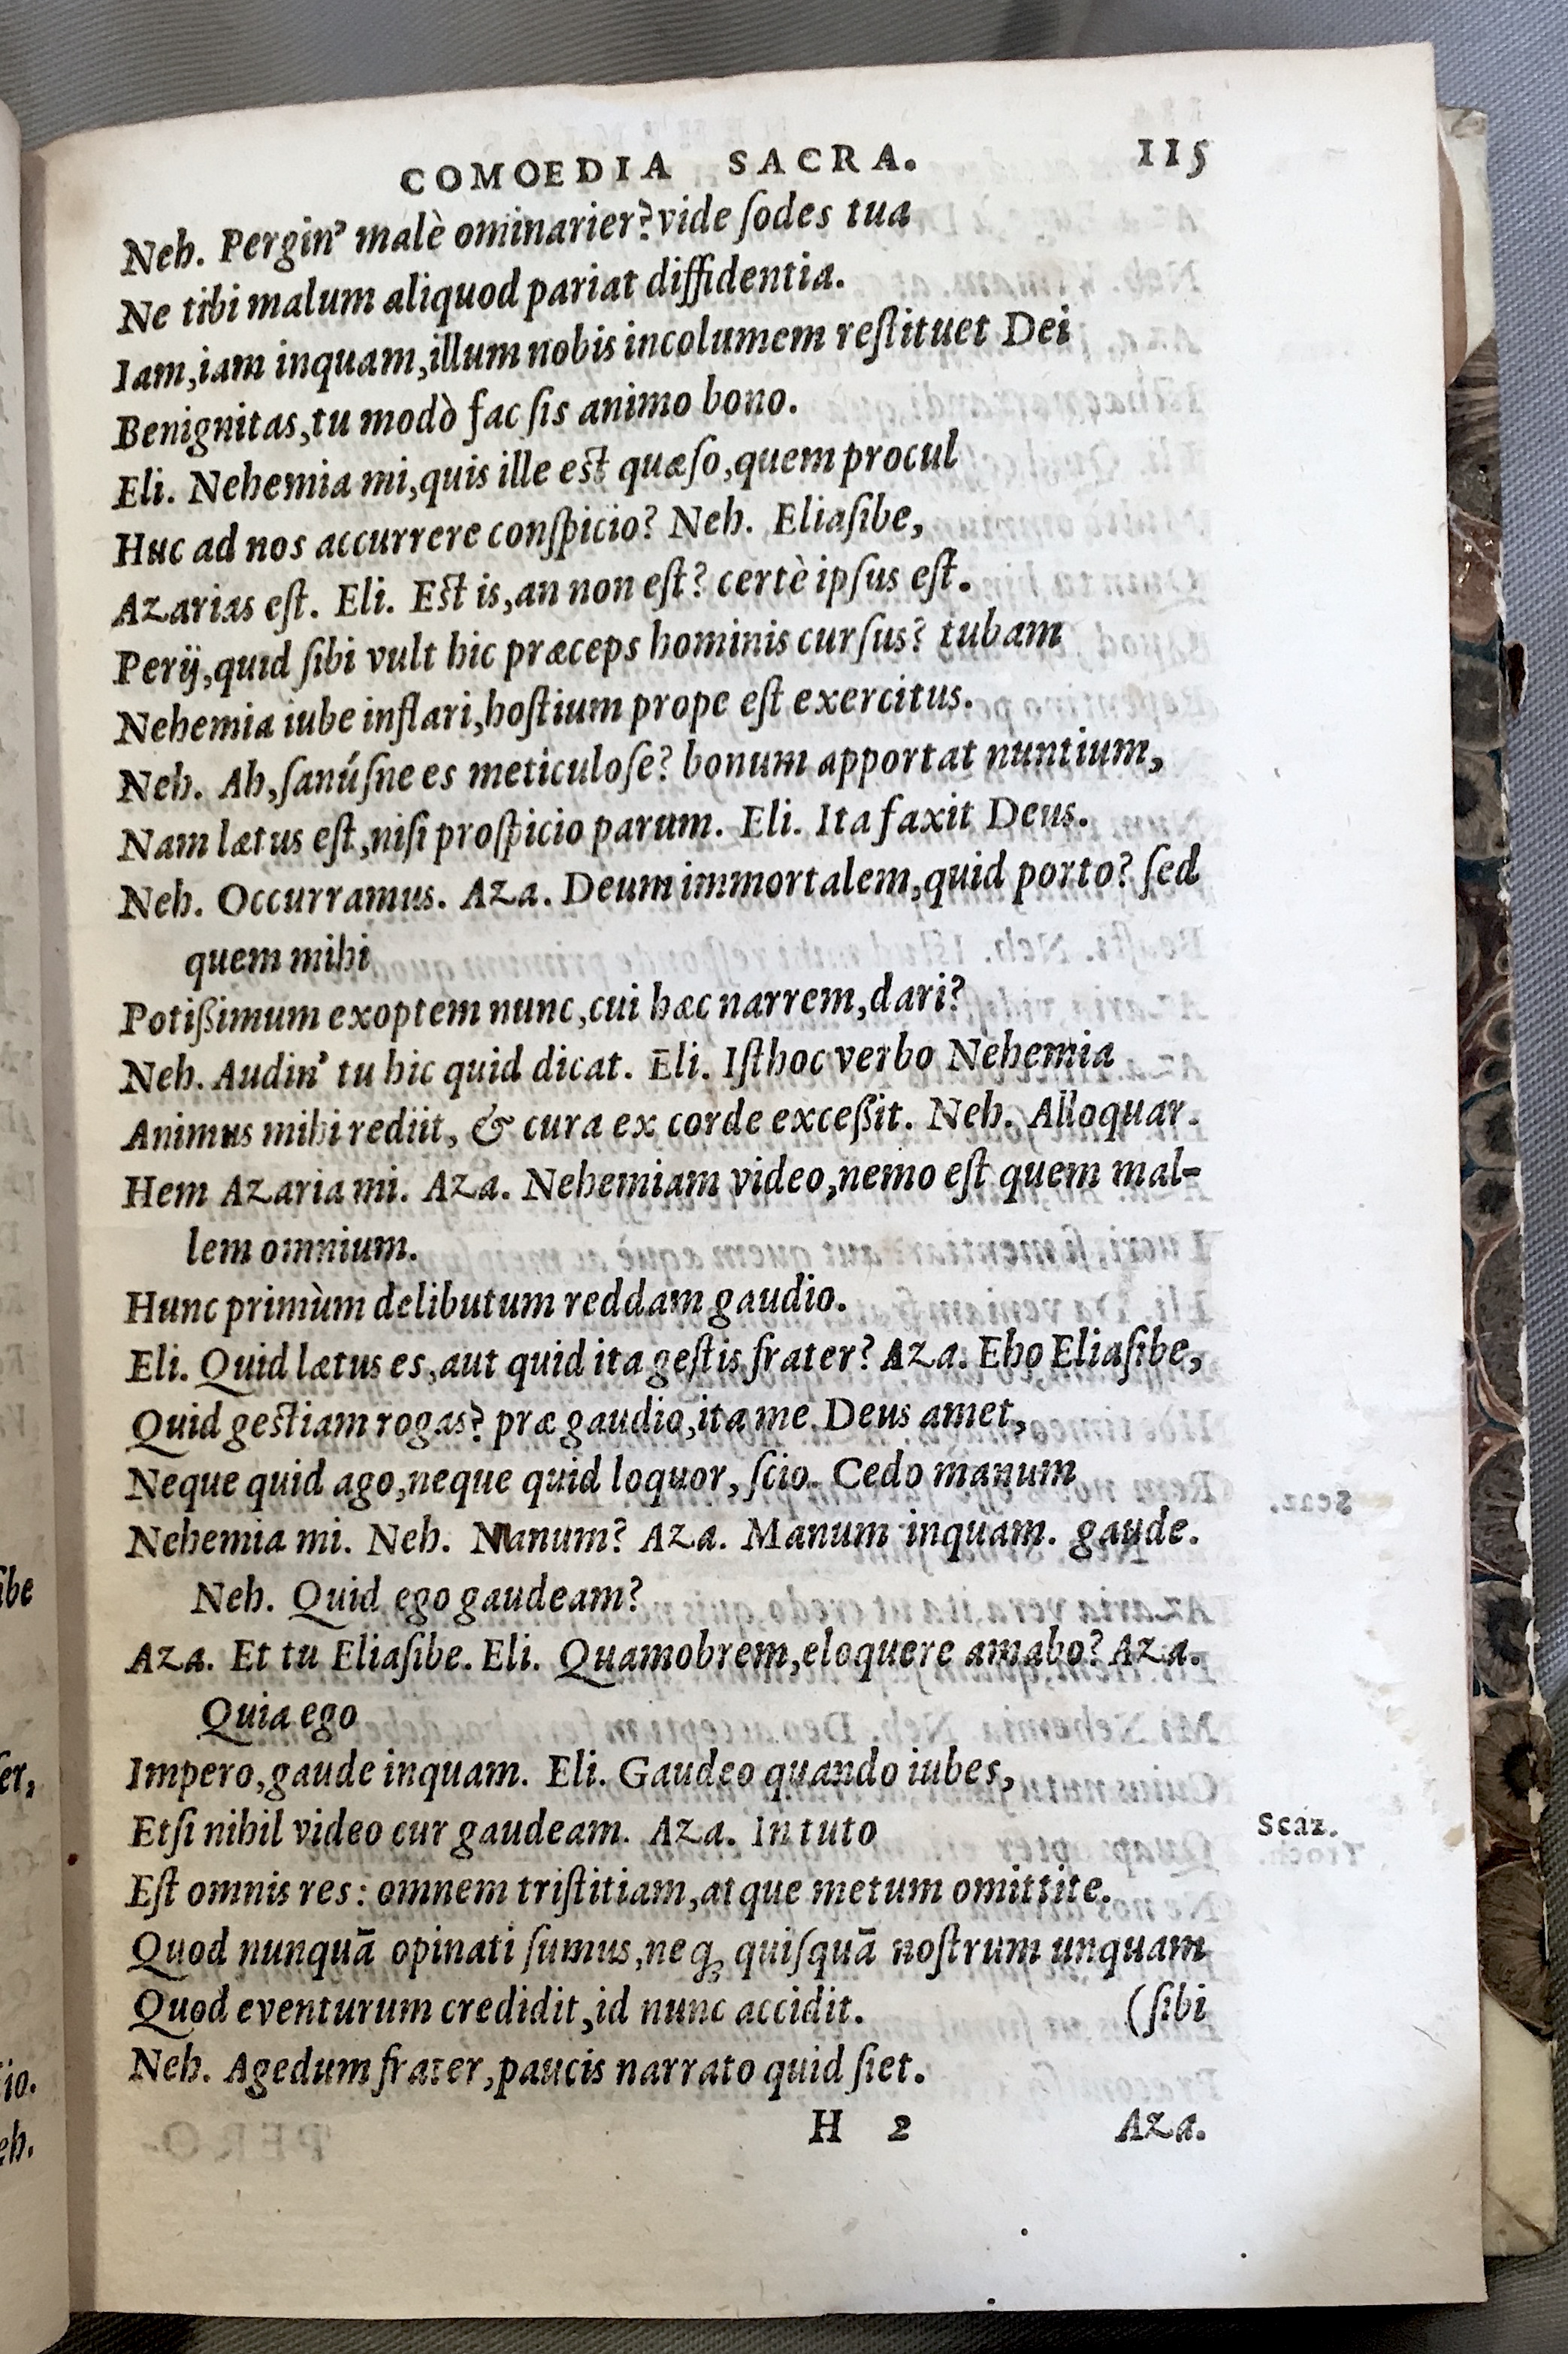 COMOEDIA SACRA. 115
Neh. Pergin' malè ominarier? vide ſodes tua
Ne tibi malum aliquod pariat diffidentia.
Iam, iam inquam, illum nobis incolumem reſtituet Dei
Benignitas, tu modò fac ſis animo bono.
Eli. Nehemia mi, quis ille est quæſo, quem procul
Huc ad nos accurrere conſpicio? Neh. Eliaſibe,
Azarias eſt. Eli. Est is, an non eſt? certè ipſus eſt.
Perij, quid ſibi vult hic præceps hominis curſus? tubam
Nehemia iube inflari, hoſtium prope eſt exercitus.
Neh. Ah, ſanúſne es meticuloſe? bonum apportat nuntium,
Nam lætus eſt, niſi proſpicio parum. Eli. Ita faxit Deus.
Neh. Occurramus. Aza. Deum immortalem, quid porto? ſed
quem mihi
Potiſſimum exoptem nunc, cui hæc narrem, dari?
Neh. Audin' tu hic quid dicat. Eli. Iſthoc verbo Nehemia
Animus mihi rediit, & cura ex corde exceſſit. Neh. Alloquar.
Hem Azaria mi. Aza. Nehemiam video, nemo eſt quem mal-
lem omnium.
Hunc primùm delibutum reddam gaudio.
Eli. Quid lætus es, aut quid ita geſtis frater? Aza. Eho Eliaſibe,
Quid gestiam rogas? præ gaudio, ita me Deus amet,
Neque quid ago, neque quid loquor, ſcio. Cedo manum
Nehemia mi. Neh. Manum? Aza. Manum inquam. gaude.
Neh. Quid ego gaudeam?
Aza. Et tu Eliaſibe. Eli. Quamobrem, eloquere amabo? Aza.
Quia ego
Impero, gaude inquam. Eli. Gaudeo quando iubes,
Etſi nihil video cur gaudeam. Aza. In tuto Scaz.
Eſt omnis res: omnem triſtitiam, atque metum omittite.
Quod nunquā opinati ſumus, neq; quiſquā noſtrum unquam
Quod eventurum credidit, id nunc accidit. (ſibi
Neh. Agedum frater, paucis narrato quid ſiet.
H 2 Aza.